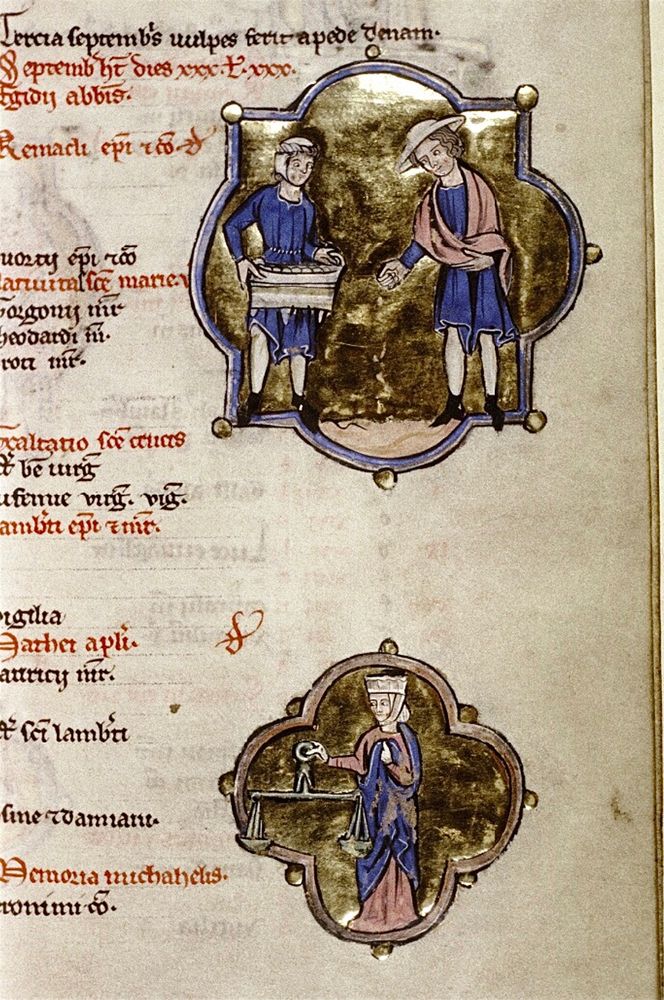 Tercia septemb̄s uulpes ferit a pede denam.
Septemb ht̄ dies xxx. L̄. xxx.
Egidii abb̄is.
Remacli ep̄i ⁊ cō
uortii ep̄i ⁊ cō
atiuitas sc̄e marie. v
Gorgonii mr̄
heodardi m̄.
roti mr̄.
xaltatio sc̄e crucis
bē uirḡ
ufemie uirḡ. viḡ.
amb̄ti ep̄i ⁊ mr̄.
vigilia
Mathei apl̄i.
auricii mr̄.
sc̄i lamb̄ti
osme ⁊ damiani.
Memoria michahelis.
eronimi cō.